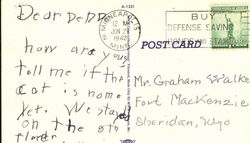 Dear Dedd
how are you
tell me if the
cat is home
yet. We stayed
on the 8th
floor
A-1331
MINNEAPOLIS
12 M
JUN 29
1942
MINN.
BUY
DEFENSE SAVINGS
AND STAMPS
POST CARD
Mr. Graham Walke
Fort MacKenzie
Sheridan, Wyo